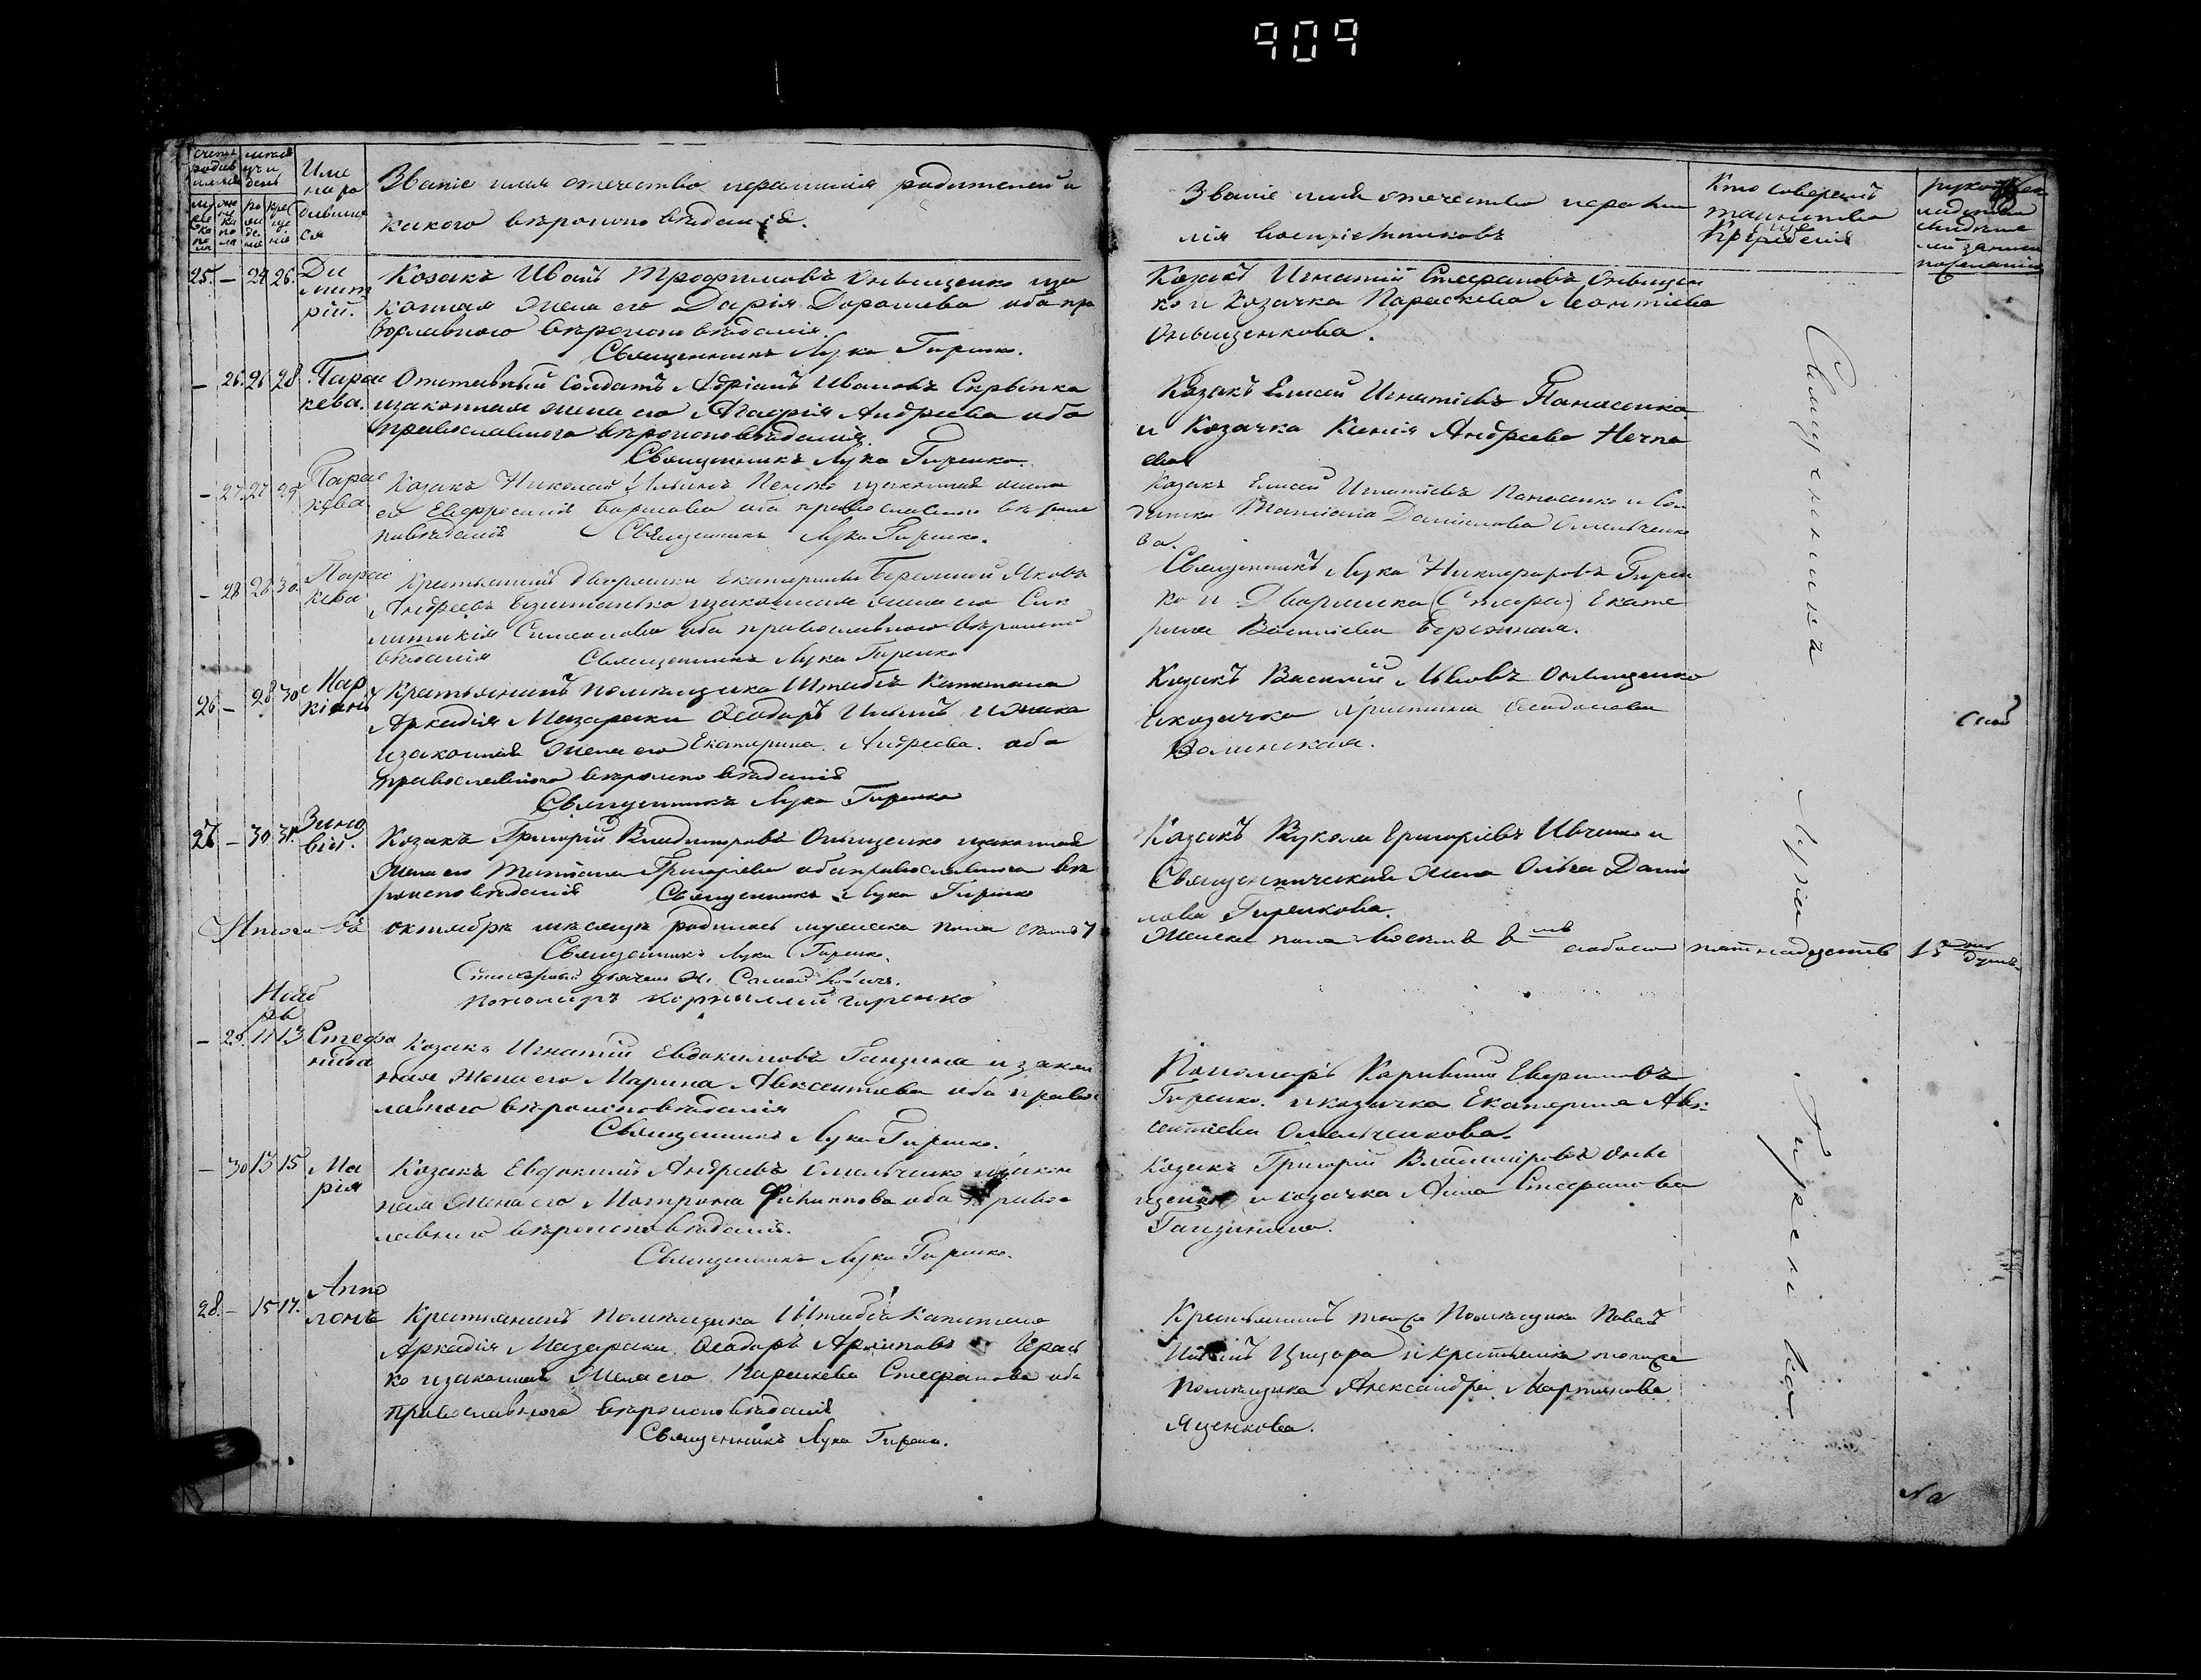 909
Име
на ро
дивших
ся
Званіе имя отечество и фамилія родителей и
какого вѣроисповѣданія.
Званіе имя отечество и фами
лія воспріемниковъ
Кто совершалъ
таинство
Крещенія
25. — 24 26. Ди
мит
рій.
Козакъ Иванъ Трофимовъ Онищенко иза
конная жена его Дарія Дорошева оба пра
вославного вѣроисповѣданія.
Священникъ Лука Гиренко.
Козакъ Игнатій Стефановъ Онищен
ко и Козачка Параскева Леонтіева
Онищенкова.
— 26. 26 28 Парас
кева.
Отставный Солдатъ Адріанъ Ивановъ Скрыпка
изаконная жена его Агафія Андреева оба
православного вѣроисповѣданія.
Священникъ Лука Гиренко.
Козакъ Елисей Игнатіевъ Панасенко
и Козачка Ксенія Андреева Нечпа
ева
— 27. 27 29 Парас
кева
Козакъ Николай Ильинъ изаконная жена
его Евфросинія Борисова оба православного вѣроис
повѣданія Священникъ Лука Гиренко.
Козакъ Елисей Игнатіевъ Панасенко и Сол
датка Татіана Даніилова Омельченко
ва.
— 28 28 30. Парас
кева
Крестьянинъ дворянки Екатерины Бережной Яковъ
Андреевъ изаконная жена его Син
клитикія Симеонова оба православного вѣроиспо
вѣданія Священникъ Лука Гиренко
Священникъ Лука Никифоровъ Гирен
ко и Дворянка (Стара) Екате
рина Васильева Бережная.
26 — 28 30 Мар
кіанъ
Крестьянинъ помѣщика Штабсъ Капитана
Аркадія Мазараки Ѳеодоръ Ильинъ
изаконная жена его Екатерина Андреева оба
православного вѣроисповѣданія
Священникъ Лука Гиренко
Козакъ Василій Львовъ Онищенко
и козачка Христина Ѳеодосіева
Волинская.
27 — 30 31. Зино
вій.
Козакъ Григорій Владиміровъ Онищенко изаконная
жена его Татіана Григоріева оба православного вѣ
роисповѣданія Священникъ Лука Гиренко
Козакъ Вукола Григоріевъ Ивченко и
Священническая жена Ольга Дани
лова Гиренкова.
Итого въ октябрѣ мѣсяцѣ родилось мужеска пола семь 7
женска пола восемь 8 обоего пятнадцать 15 душъ
Священникъ Лука Гиренко.
Пономарь Корнилий Гиренко
Нояб
ря
— 29. 11 13 Стефа
нида
Козакъ Игнатій Евдокимовъ Ганзина и закон
ная жена его Марина Авксентіева оба правос
лавного вѣроисповѣданія
Священникъ Лука Гиренко.
Пономарь Корнилій Евфимовъ
Гиренко. и козачка Екатерина Авк
сентіева Омельченкова.
— 30 13 15 Ма
рія
Козакъ Евдокимъ Андреевъ Омельченко изакон
ная жена его Матрона Филиппова оба правос
лавного вѣроисповѣданія.
Священникъ Лука Гиренко.
Козакъ Григорій Владиміровъ Они
щенко и козачка Анна Стефанова
Ганзинина.
28. — 15 17. Апло
лонъ
Крестьянинъ помѣщика Штабсъ Капитана
Аркадія Мазараки Ѳеодоръ Архиповъ Герась
ко изаконная жена его Параскева Стефанова оба
православного вѣроисповѣданія
Священникъ Лука Гиренко.
Крестьянинъ тогоже Помѣщика Павелъ
и крестьянка тогоже
помѣщика Александра Мартинова
Яценкова.
Священникъ Лука Гиренко.